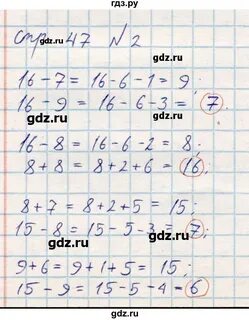 стр. 47 №2
16-7=16-6-1=9;
16-9=16-6-3=7;
16-8=16-6-2=8;
8+8=8+2+6=16;
8+7=8+2+5=15;
15-8=15-5-3=7;
9+6=9+1+5=15;
15-9=15-5-4=6
gdz.ru
gdz.ru
gdz.ru
gdz.ru
gdz.ru
gdz.ru
gdz.ru
gdz.ru